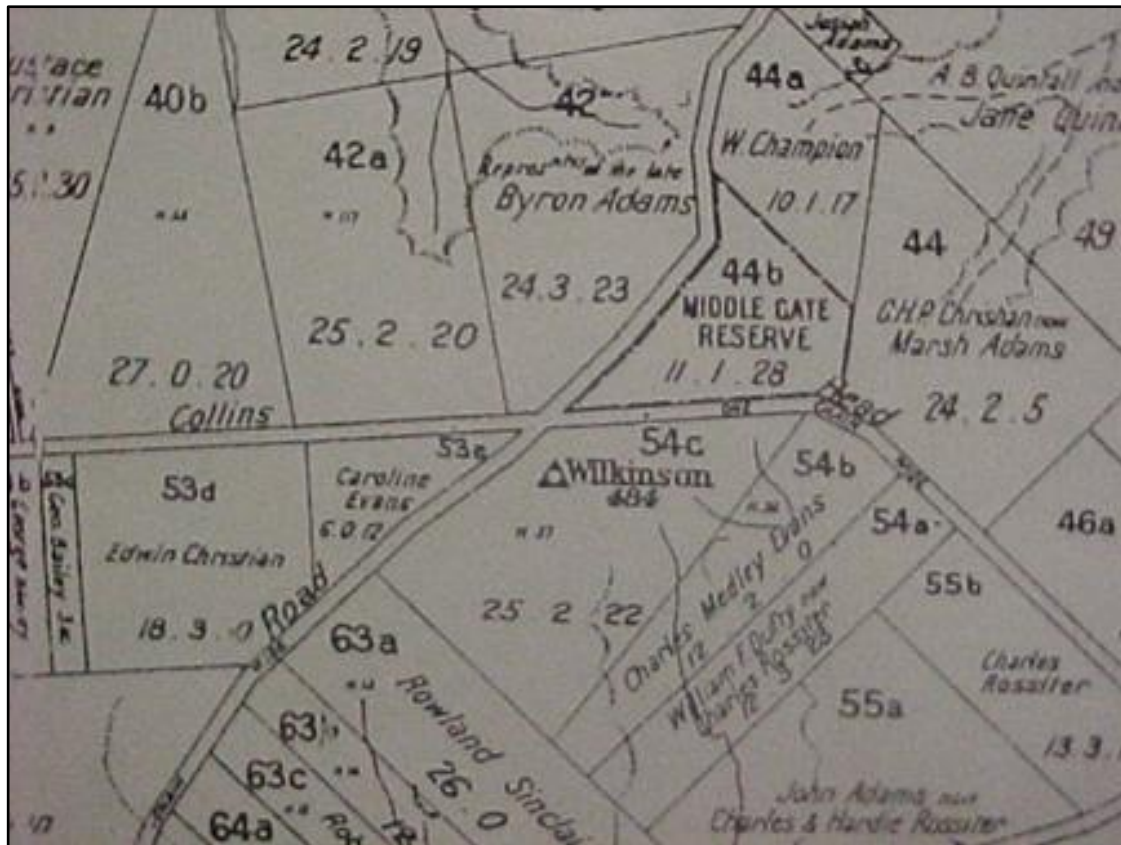 24.2.19
40b
42a
42
Byron Adams
of the late
24.3.23
25.2.20
27.0.20
Collins
Joseph
Adams
44a
W. Champion
10.1.17
A B Quintall
Jane
44
49
44b
MIDDLE GATE
RESERVE
11.1.28
G.H.P. Christian now
Marsh Adams
24.2.5
Road
53d
Edwin Christian
18.3.0
Geo. Bailey
Caroline
Evans
6.0.12
Road
54c
Wilkinson
484
25 2 22
54b
Charles Medley Evans
12 2 0
54a
William F. Duffy now
Charles Rossiter
12 3 28
46a
55b
Charles
Rossiter
13.3.
55a
John Adams
Charles & Hardie Rossiter
63a
Rowland Sindal
26.0
63b
63c
64a